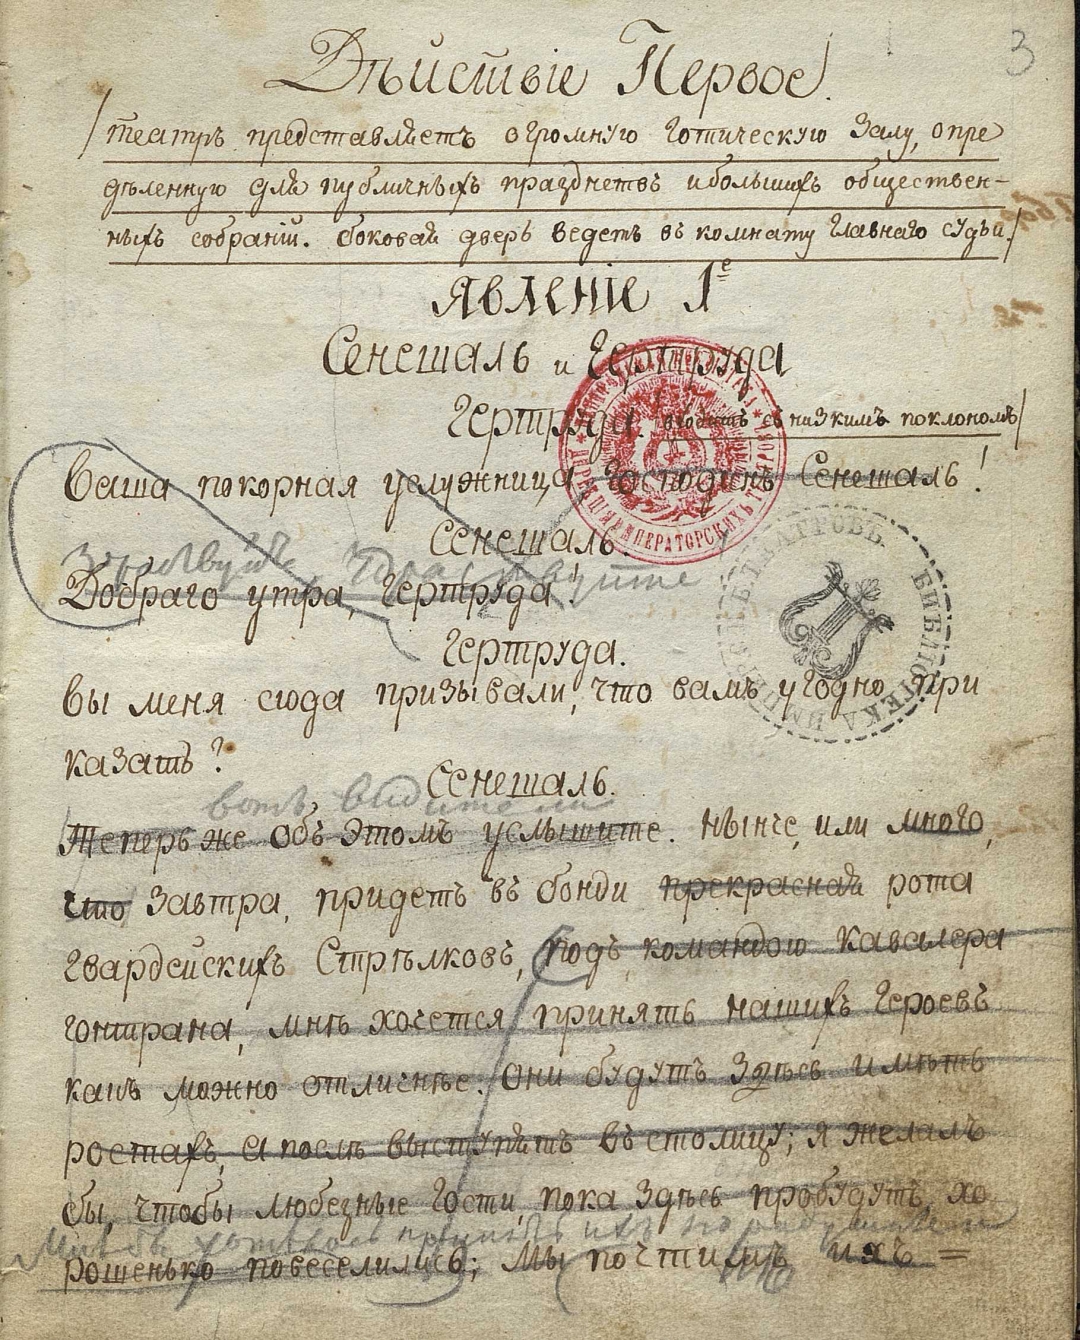 3
Дѣйствіе Первое.
/театръ представляетъ огромную готическую залу, опре
дѣленную для публичныхъ празднетвъ и большихъ обществен-
ныхъ собраній. боковая дверь ведетъ въ комнату главнаго судьи./
Явленіе 1е
Сенешаль и Гертруда
Гертруда. /входитъ съ низкимъ поклономъ/
Ваша покорная услужница господинъ Сенешаль!
Сенешаль.
Здравствуйте
Добраго утра, Гертруда!
Гертруда.
Вы меня сюда призывали, что вамъ угодно при
казать?
Сенешаль.
вотъ видите ли
Теперь же объ этомъ услышите. нынче, или много,
что завтра, придетъ въ бонди прекрасная рота
гвардейскихъ Стрѣлковъ, подъ командою кавалера
гонтрана, мнѣ хочется принять нашихъ героевъ
какъ можно отличнѣе. Они будутъ здѣсь имѣть
ростахъ, а послѣ выступятъ въ столицу; я желалъ
бы, чтобы любезные гости, пока здѣсь пробудутъ, хо
Мнѣ бы хотѣлось принять ихъ
рошенько повеселились; Мы почтимъ ихъ =
ДИРЕКЦІИ ИМПЕРАТОРСКИХЪ ТЕАТРОВЪ
БИБЛІОТЕКА ИМПЕРАТОРСК. ТЕАТРОВЪ